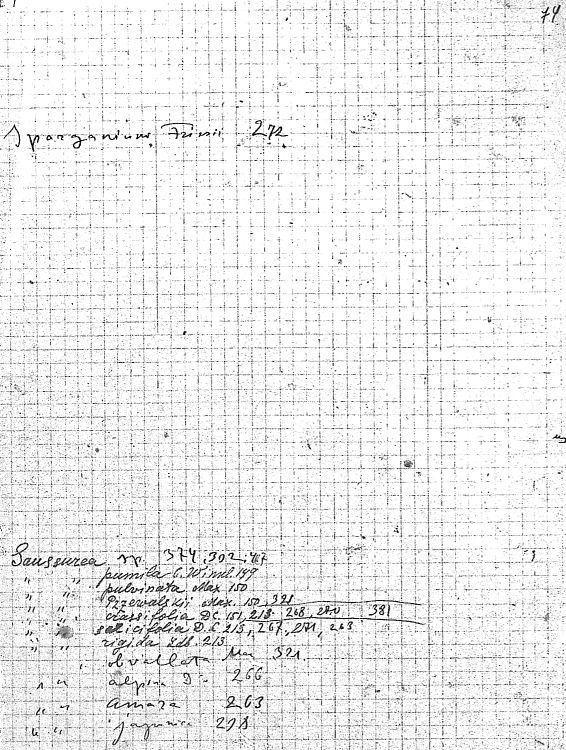 74
Sparganium Friesii 272
Saussurea sp. 374, 302, 
" " pumila C. Winkl. 149
" " pulvinata Max 150
" " Przewalskii Max. 150, 321
" " crassifolia DC. 151, 213, 268, 270 381
" " salicifolia D.C. 213, 267, 271, 268
" " rigida Ldb. 213
" obvallata 321
" " alpina D. 266
" " amara 263
" " japonica 298